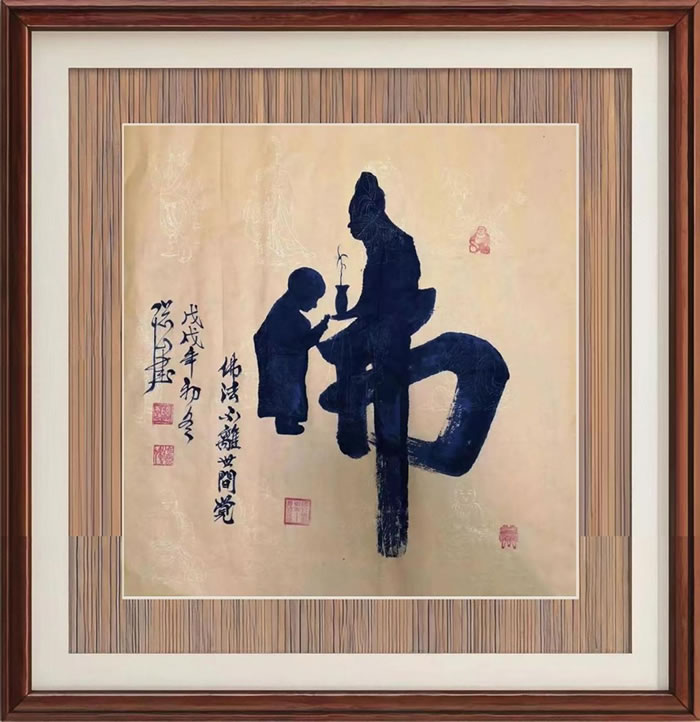 佛
佛法不離世間覺
戊戌年初冬
書